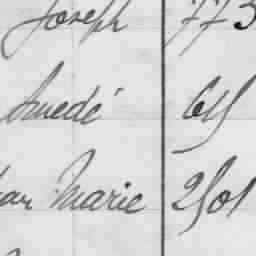 Joseph 773
Amedé 615
Marie 2501